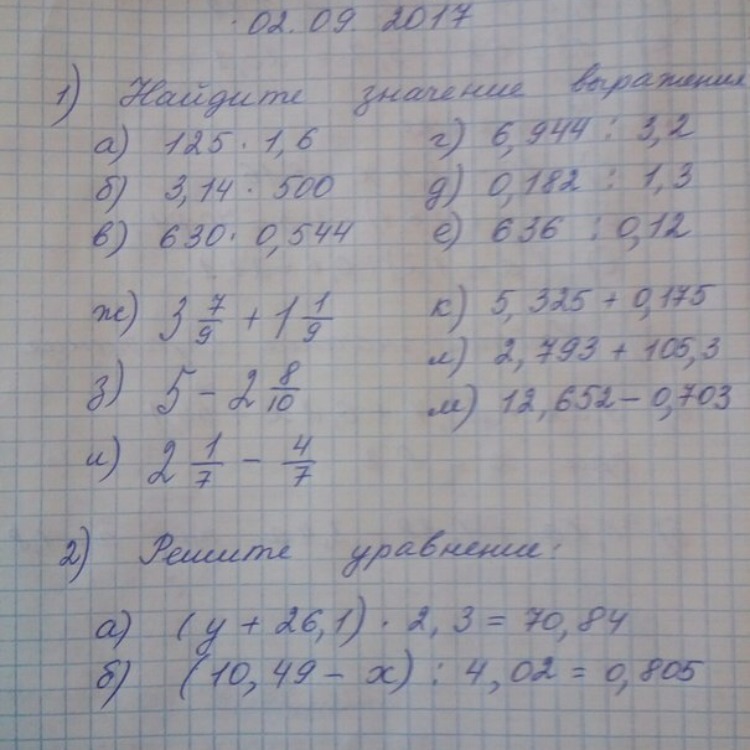 02.09.2017
1) Найдите значение выражения
а) 125 · 1,6   г) 6,944 : 3,2
б) 3,14 · 500   д) 0,182 : 1,3
в) 630 · 0,544   е) 636 : 0,12
ж) 3 7/9 + 1 1/9   к) 5,325 + 0,175
з) 5 - 2 8/10   л) 2,793 + 105,3
и) 2 1/7 - 4/7   м) 12,652 - 0,703
2) Решите уравнение:
а) (y + 26,1) · 2,3 = 70,84
б) (10,49 - x) : 4,02 = 0,805